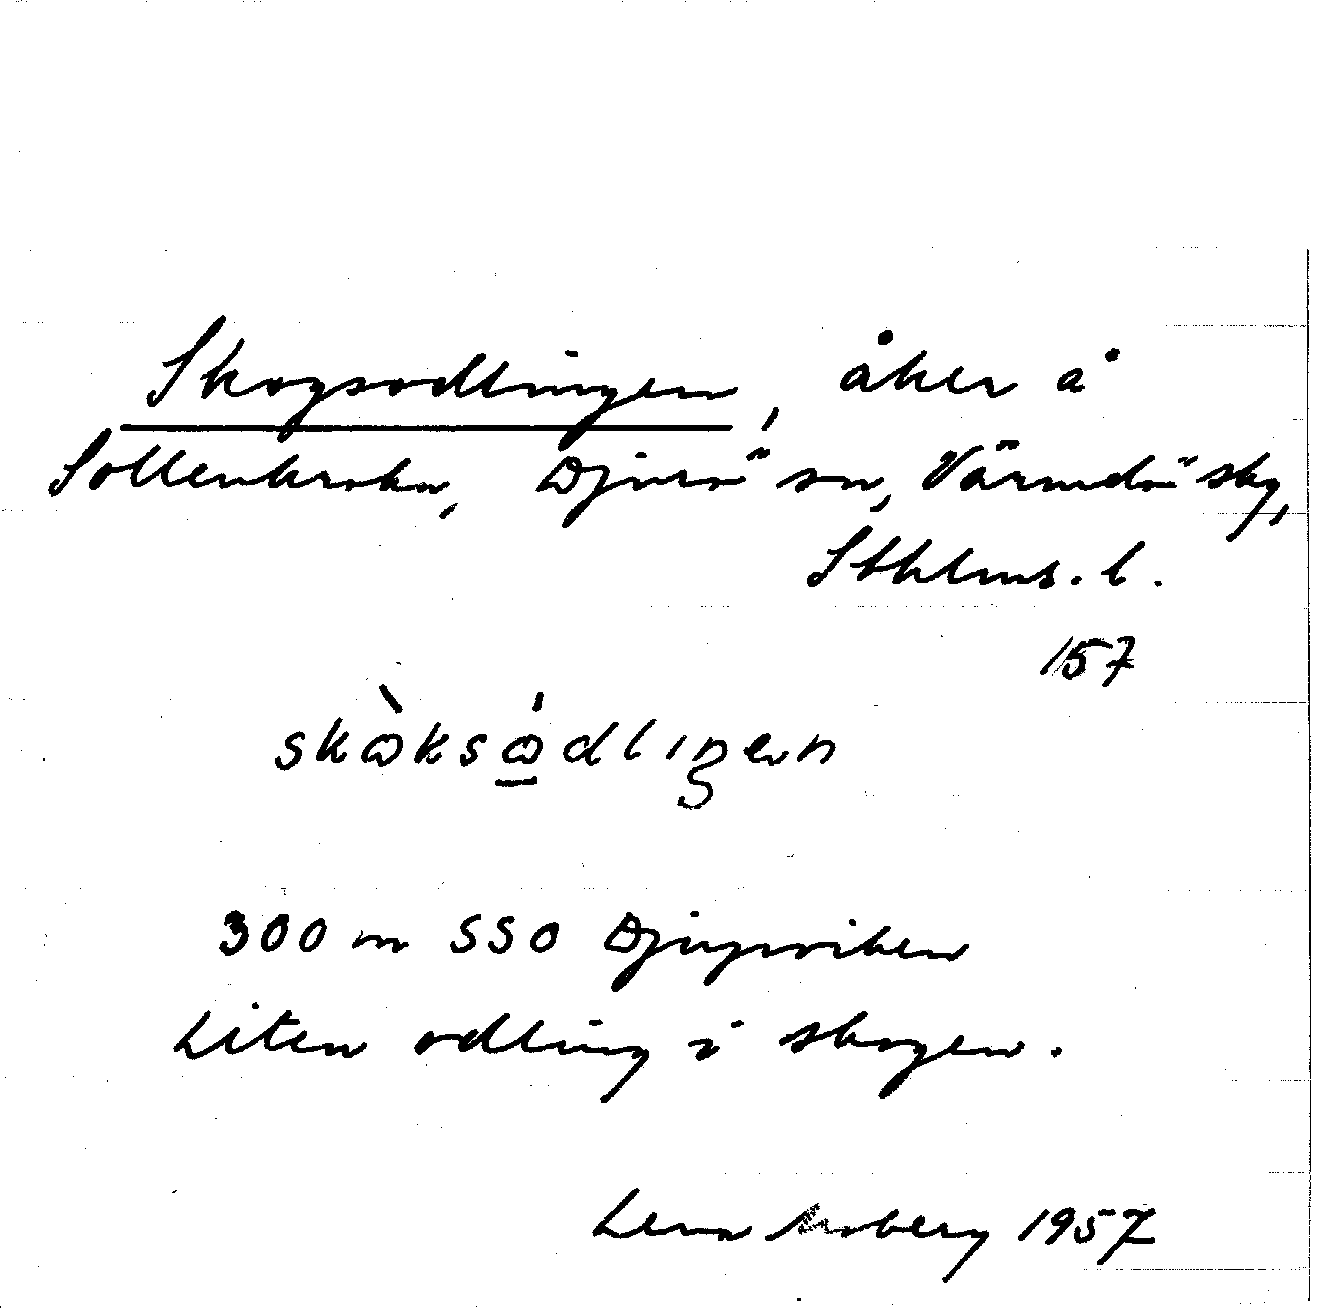 Skogsodlingen, åker å
Sollenkroka, Djurö sn, Värmdö skg,
Sthlms. l.
157
skὼksώ̲dliŋen
300 m SSO Djupviken
Liten odling i skogen.
Lena Moberg 1957